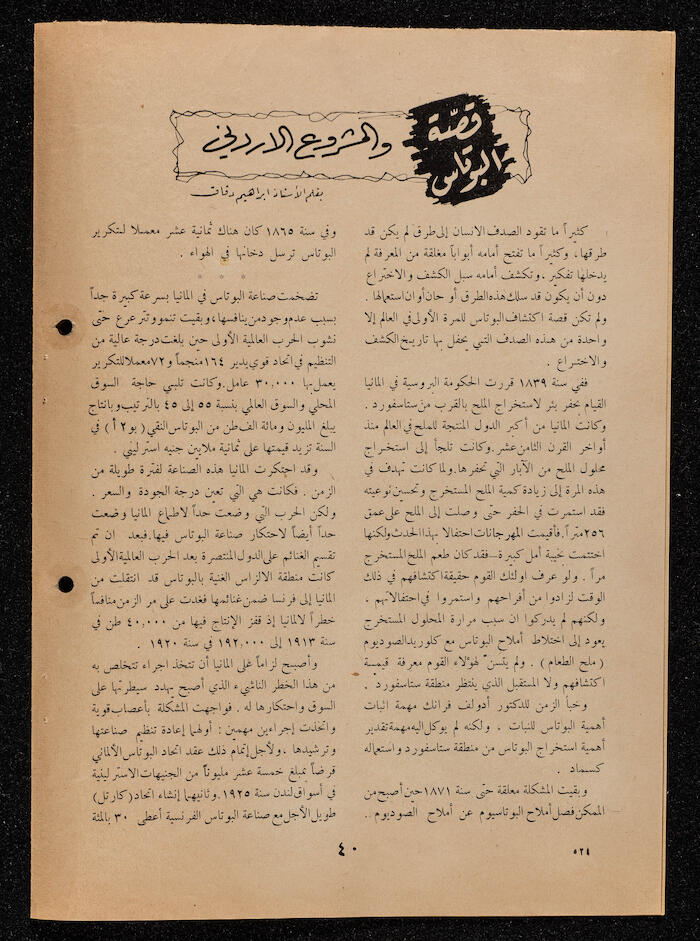 قصّة
البوتاس
والمشروع الاردني
بقلم الأستاذ ابراهيم دقاق
كثيراً ما تقود الصدف الانسان إلى طرق لم يكن قد
طرقها ، وكثيراً ما تفتح أمامه أبواباً مغلقة من المعرفة لم
يدخلها تفكيره ، وتكشف أمامه سبل الكشف والاختراع
دون أن يكون قد سلك هذه الطرق أو حان أوان استعمالها .
ولم تكن قصة اكتشاف البوتاس للمرة الأولى في العالم إلا
واحدة من هذه الصدف التي يحفل بها تاريخ الكشف
والاختراع .
ففي سنة ١٨٣٩ قررت الحكومة البروسية في المانيا
القيام بحفر بئر لاستخراج الملح بالقرب من ستاسفورد .
وكانت المانيا من أكبر الدول المنتجة للملح في العالم منذ
أواخر القرن الثامن عشر . وكانت تلجأ إلى استخراج
محلول الملح من الآبار التي تحفرها . ولما كانت تهدف في
هذه المرة إلى زيادة كمية الملح المستخرج وتحسين نوعيته
فقد استمرت في الحفر حتى وصلت إلى الملح على عمق
٢٥٦ متراً . فأقيمت المهرجانات احتفالا بهذا الحدث ولكنها
اختتمت بخيبة أمل كبيرة – فقد كان طعم الملح المستخرج
مراً . ولو عرف اولئك القوم حقيقة اكتشافهم في ذلك
الوقت لزادوا من أفراحهم واستمروا في احتفالاتهم ،
ولكنهم لم يدركوا ان سبب مرارة المحلول المستخرج
يعود إلى اختلاط أملاح البوتاس مع كلوريد الصوديوم
( ملح الطعام ) . ولم يتسنّ لهؤلاء القوم معرفة قيمة
اكتشافهم ولا المستقبل الذي ينتظر منطقة ستاسفورد .
وخبأ الزمن للدكتور أدولف فرانك مهمة اثبات
أهمية البوتاس للنبات ، ولكنه لم يوكل اليه مهمة تقدير
أهمية استخراج البوتاس من منطقة ستاسفورد واستعماله
كسماد .
وبقيت المشكلة معلقة حتى سنة ١٨٧١ حين أصبح من
الممكن فصل أملاح البوتاسيوم عن أملاح الصوديوم ..
وفي سنة ١٨٦٥ كان هناك ثمانية عشر معملا لتكرير
البوتاس ترسل دخانها في الهواء .
* * *
تضخمت صناعة البوتاس في المانيا بسرعة كبيرة جداً
بسبب عدم وجود من ينافسها ، وبقيت تنمو وتترعرع حتى
نشوب الحرب العالمية الأولى حين بلغت درجة عالية من
التنظيم في اتحاد قوي يدير ١٦٤ منجماً و ٧٢ معملا للتكرير
يعمل بها ٣٠,٠٠٠ عامل . وكانت تلبي حاجة السوق
المحلي والسوق العالمي بنسبة ٥٥ إلى ٤٥ بالترتيب وبانتاج
يبلغ المليون ومائة الف طن من البوتاس النقي ( بو٢ أ ) في
السنة تزيد قيمتها على ثمانية ملايين جنيه استرليني .
وقد احتكرت المانيا هذه الصناعة لفترة طويلة من
الزمن . فكانت هي التي تعين درجة الجودة والسعر .
ولكن الحرب التي وضعت حداً لاطماع المانيا وضعت
حداً أيضاً لاحتكار صناعة البوتاس فيها . فبعد ان تم
تقسيم الغنائم على الدول المنتصرة بعد الحرب العالمية الأولى
كانت منطقة الالزاس الغنية بالبوتاس قد انتقلت من
المانيا إلى فرنسا ضمن غنائمها فغدت على مر الزمن منافساً
خطراً لالمانيا إذ قفز الإنتاج فيها من ٤٠,٠٠٠ طن في
سنة ١٩١٣ إلى ١٩٢,٠٠٠ في سنة ١٩٢٠ .
وأصبح لزاماً على المانيا أن تتخذ اجراء تتخلص به
من هذا الخطر الناشيء الذي أصبح يهدد سيطرتها على
السوق واحتكارها له . فواجهت المشكلة بأعصاب قوية
واتخذت إجراءين مهمين : أولهما إعادة تنظيم صناعتها
وترشيدها ، ولأجل إتمام ذلك عقد اتحاد البوتاس الألماني
قرضاً بمبلغ خمسة عشر مليوناً من الجنيهات الاسترلينية
في أسواق لندن سنة ١٩٢٥ . وثانيهما إنشاء اتحاد ( كارتل )
طويل الأجل مع صناعة البوتاس الفرنسية أعطى ٣٠ بالمئة
٤٠
٥٢٤